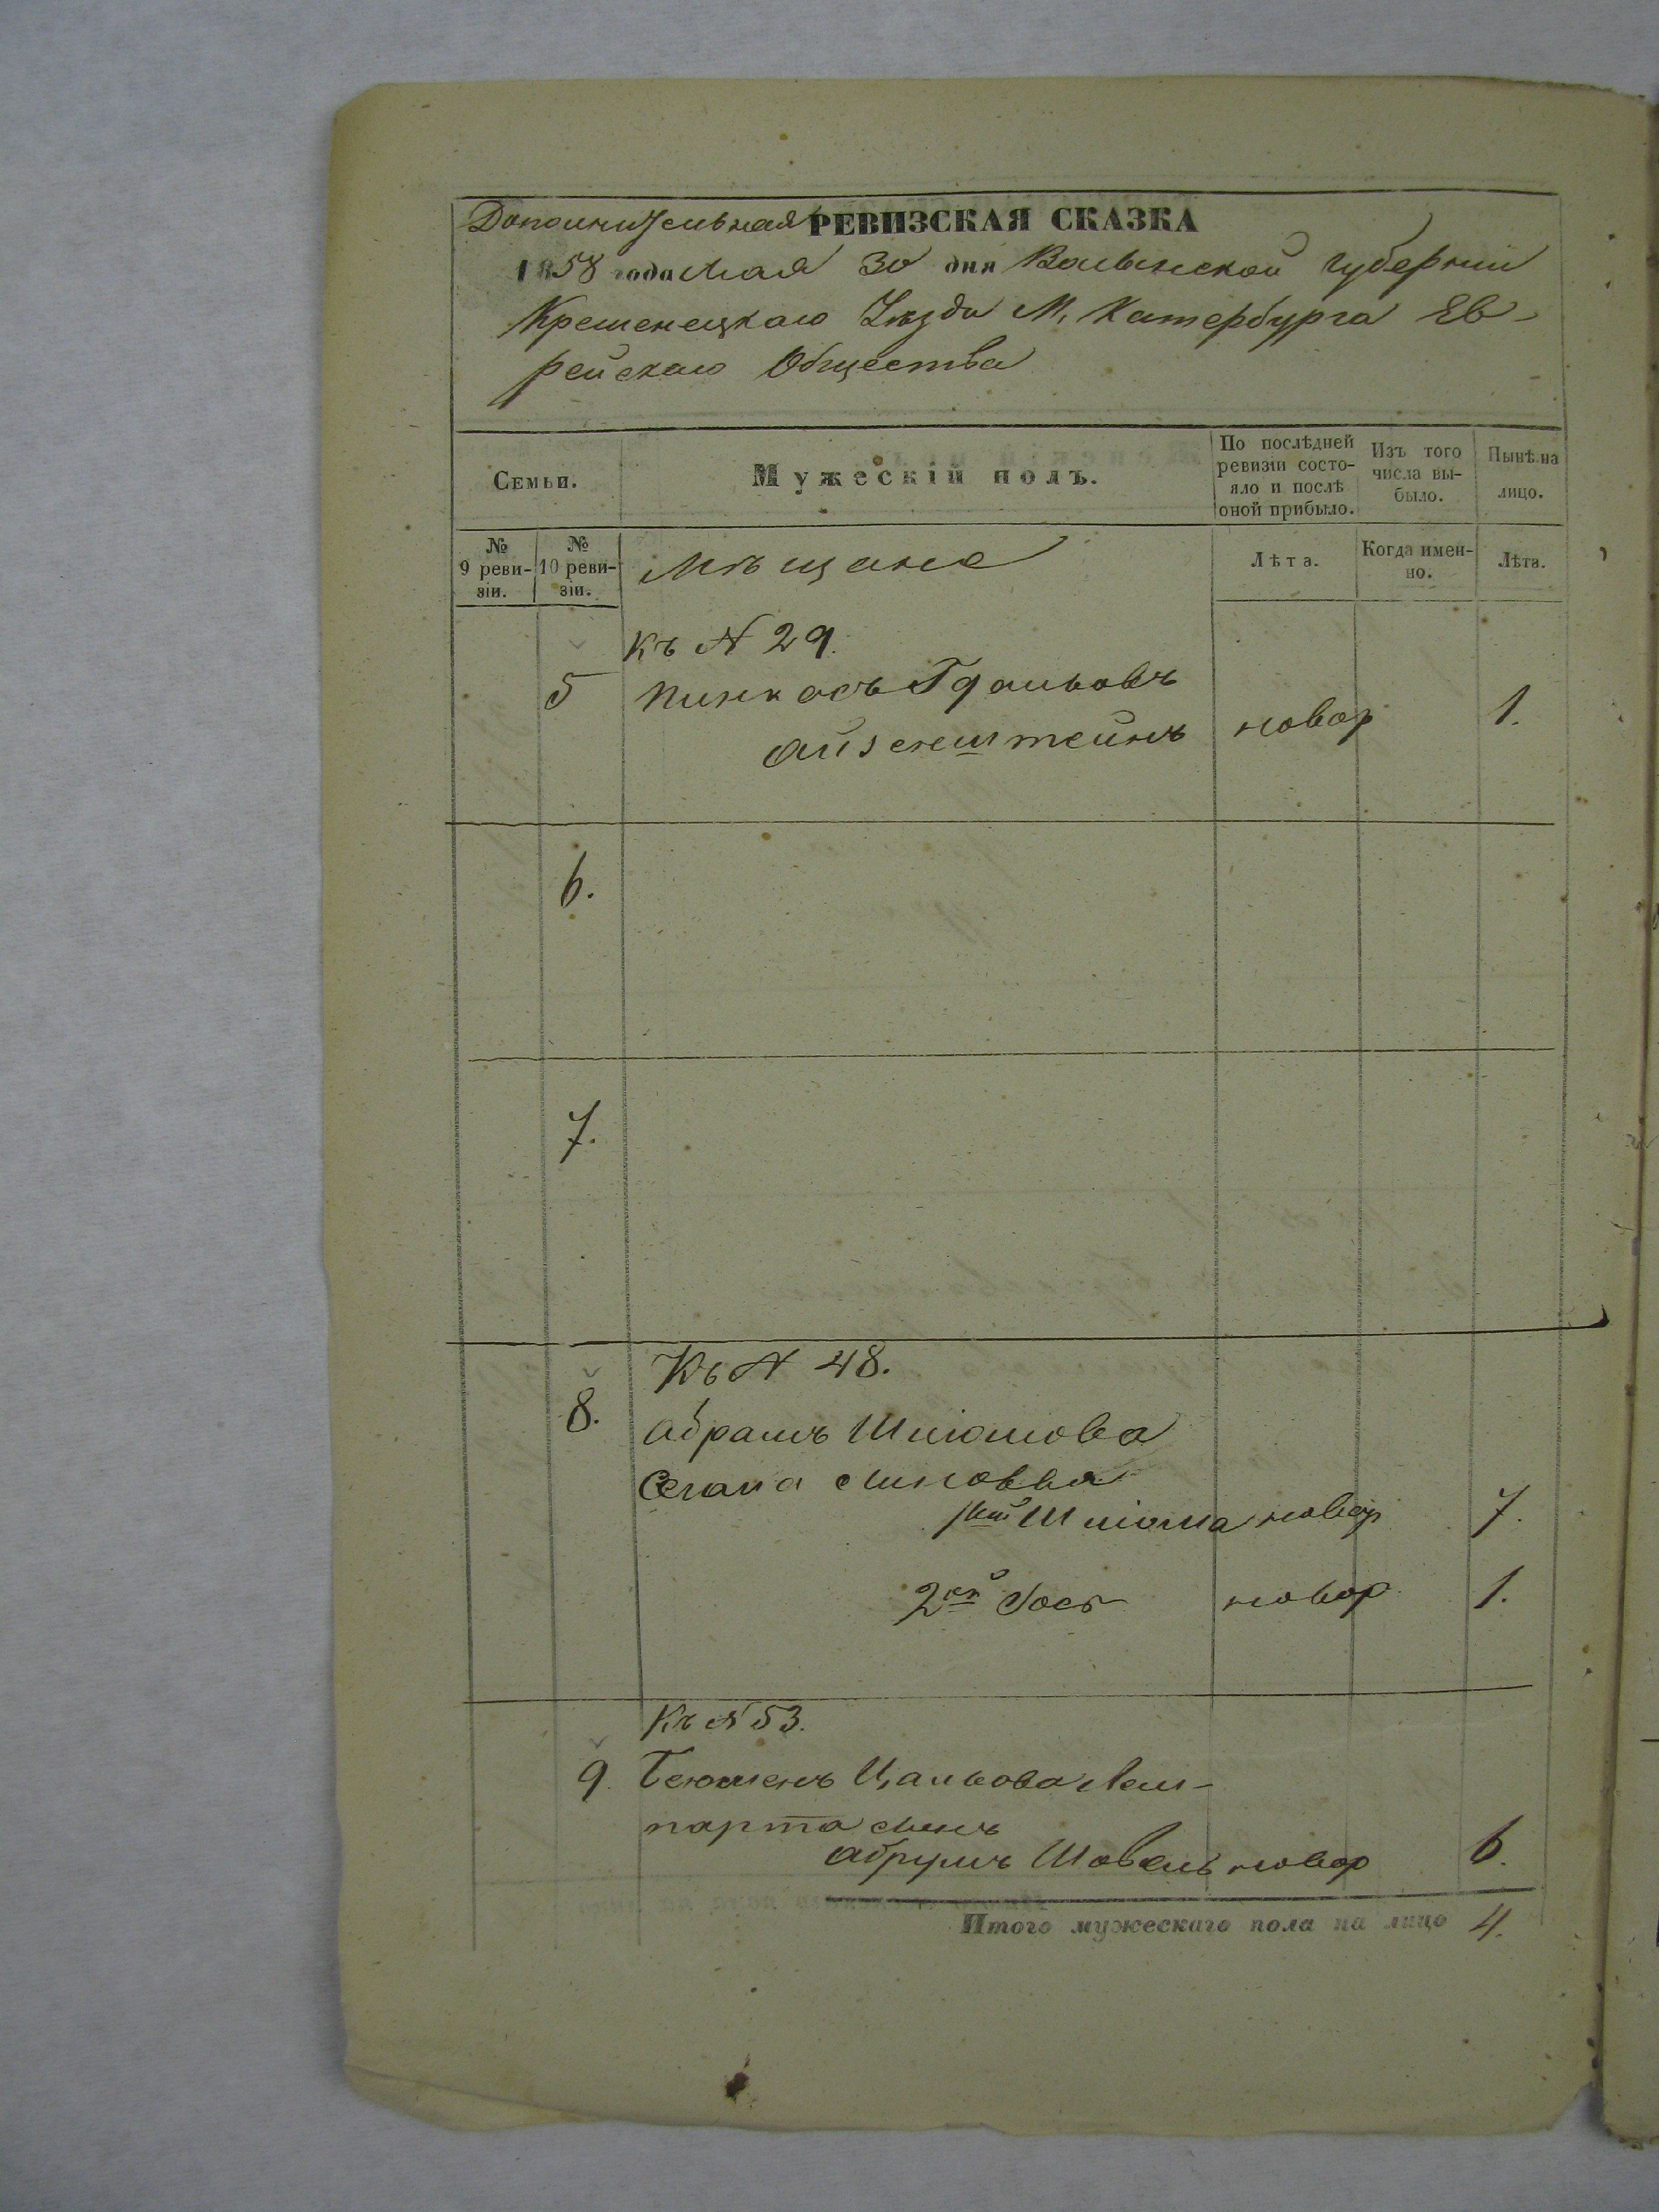 Дополнительная РЕВИЗСКАЯ СКАЗКА
1858 года Мая 30 дня Волынской губернии
Кременецкаго Уѣзда М. Катербурга Ев-
рейскаго Общества
Семьи.
Мужескій полъ.
По послѣдней ревизіи состо-яло и послѣ оной прибыло.
Изъ того числа вы-было.
Нынѣ на лицо.
№ 9 реви-зіи.
№ 10 реви-зіи.
Мѣщане
Лѣта.
Когда имен-но.
Лѣта.
Къ № 29.
5 Пинкасъ Гдальовъ
Айзенштейнъ новор 1.
6.
7.
Къ № 48.
8. Абрамъ Шліомова
1й Шліома новор 7.
2й Іось новор 1.
Къ № 53.
9. Беюменъ Цальова Лам-
парта сынъ
Абрумъ Шовель новор 6.
Итого мужескаго пола на лицо 4.